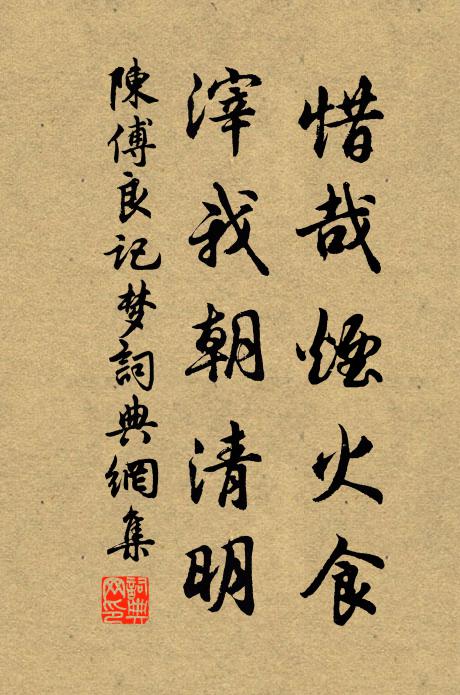 惜哉煙火食
滓我朝清明
陳傅良記梦詞典網集
詞典网印